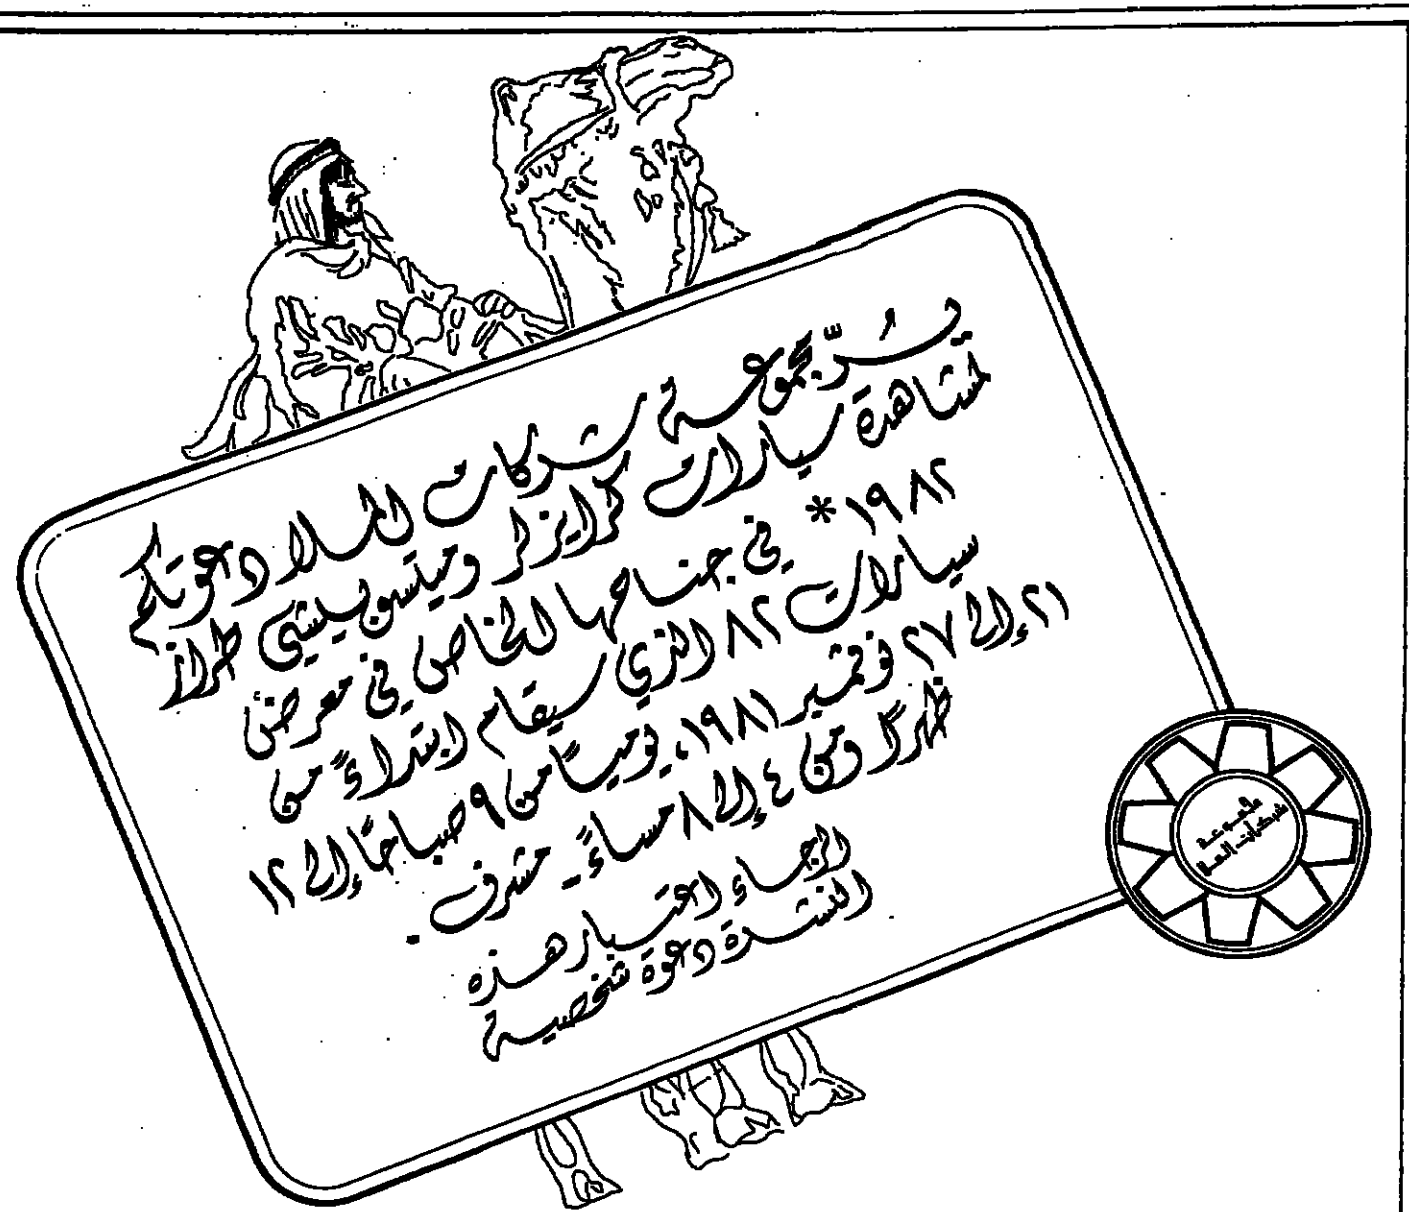 يسُرّ مجموعة شركات الملا دعوتكم
لمشاهدة سيارات كرايزلر وميتسوبيشي طراز
١٩٨٢ * في جناحها الخاص في معرض
سيارات ٨٢ الذي سيقام ابتداءً من
٢١ إلى ٢٧ نوفمبر ١٩٨١، يومياً من ٩ صباحاً إلى ١٢
ظهراً ومن ٤ إلى ٨ مساءً - مشرف .
الرجاء اعتبار هذه
النشرة دعوة شخصية
مجموعة
شركات الملا